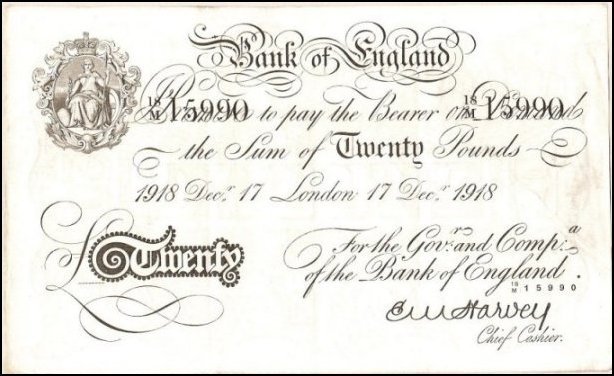 Bank of England
18/M 15990 18/M 15990
to pay the Bearer on
the Sum of Twenty Pounds
1918 Decr. 17 London 17 Decr. 1918
For the Govr. and Compa.
£ Twenty
of the Bank of England.
18/M 15990
E M Harvey
Chief Cashier.